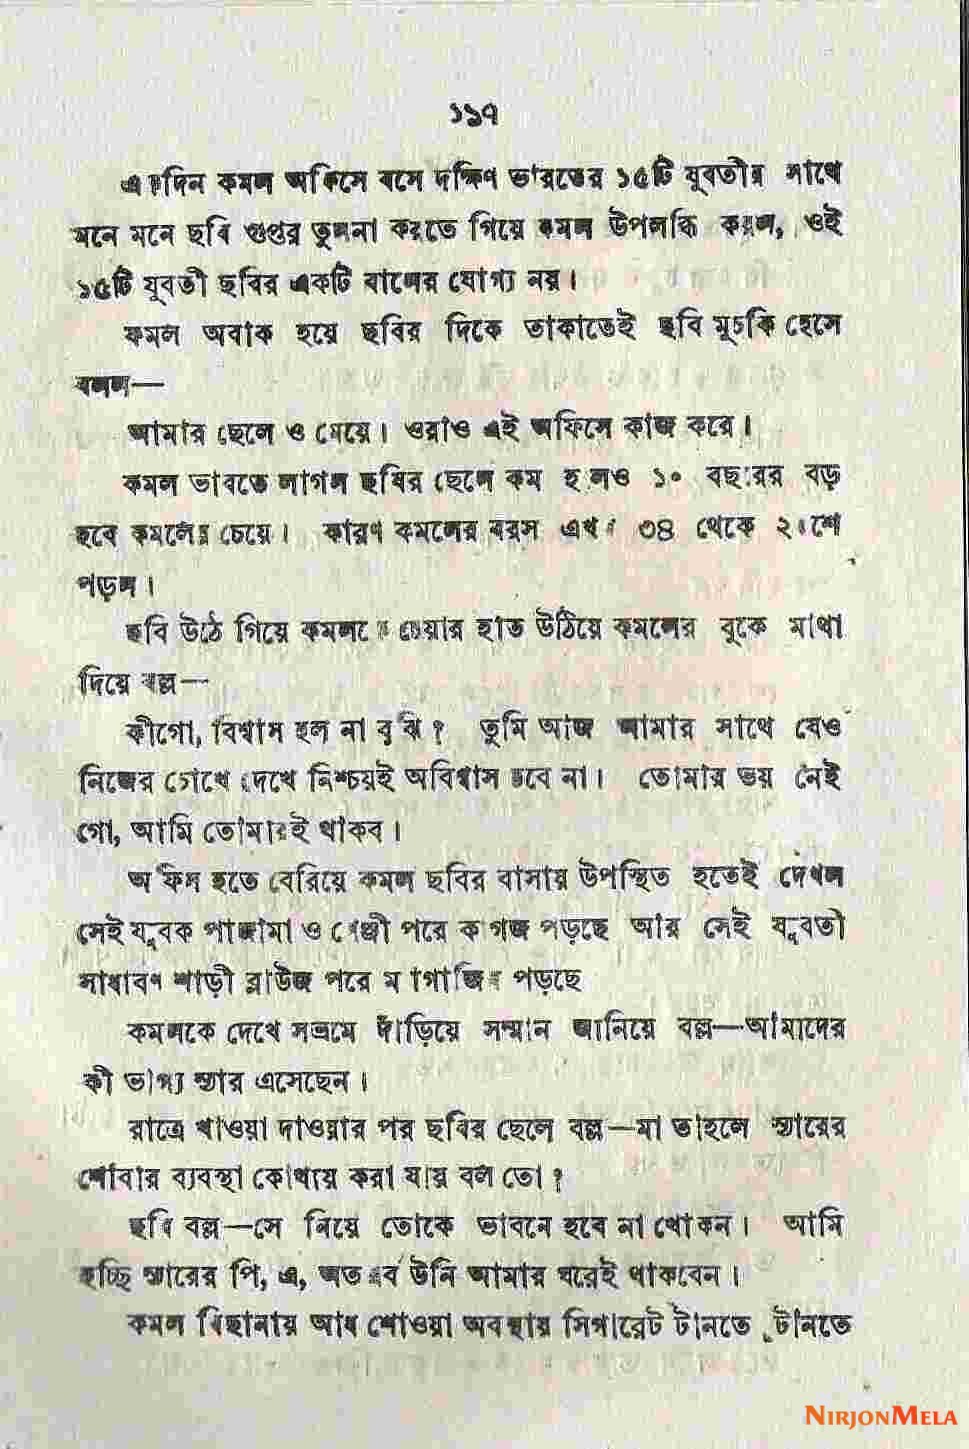 ১১৭
একদিন কমল অফিসে বসে দক্ষিণ ভারতের ১৫টি যুবতীর সাথে
মনে মনে ছবি গুপ্তর তুলনা করতে গিয়ে কমল উপলব্ধি করল, ওই
১৫টি যুবতী ছবির একটি বালের যোগ্য নয়।
কমল অবাক হয়ে ছবির দিকে তাকাতেই ছবি মুচকি হেসে
বলল—
আমার ছেলে ও মেয়ে। ওরাও এই অফিসে কাজ করে।
কমল ভাবতে লাগল ছবির ছেলে কম হলেও ১০ বছরের বড়
হবে কমলের চেয়ে। কারণ কমলের বয়স এখন ৩৪ থেকে ২৫শে
পড়ল।
ছবি উঠে গিয়ে কমলকে চেয়ার হাত উঠিয়ে কমলের বুকে মাথা
দিয়ে বল্ল—
কীগো, বিশ্বাস হল না বুঝি? তুমি আজ আমার সাথে যেও
নিজের চোখে দেখে নিশ্চয়ই অবিশ্বাস হবে না। তোমার ভয় নেই
গো, আমি তোমারই থাকব।
অফিস হতে বেরিয়ে কমল ছবির বাসায় উপস্থিত হতেই দেখল
সেই যুবক পাজামা ও গেঞ্জী পরে কাগজ পড়ছে আর সেই যুবতী
সাধারণ শাড়ী ব্লাউজ পরে ম্যাগাজিন পড়ছে
কমলকে দেখে সম্ভ্রমে দাঁড়িয়ে সম্মান জানিয়ে বল্ল—আমাদের
কী ভাগ্য স্যার এসেছেন।
রাত্রে খাওয়া দাওয়ার পর ছবির ছেলে বল্ল—মা তাহলে স্যারের
শোবার ব্যবস্থা কোথায় করা যায় বল তো?
ছবি বল্ল—সে নিয়ে তোকে ভাবনে হবে না খোকন। আমি
হচ্ছি স্যারের পি, এ, অতএব উনি আমার ঘরেই থাকবেন।
কমল বিছানায় আধ শোওয়া অবস্থায় সিগারেট টানতে টানতে
NIRJONMELA